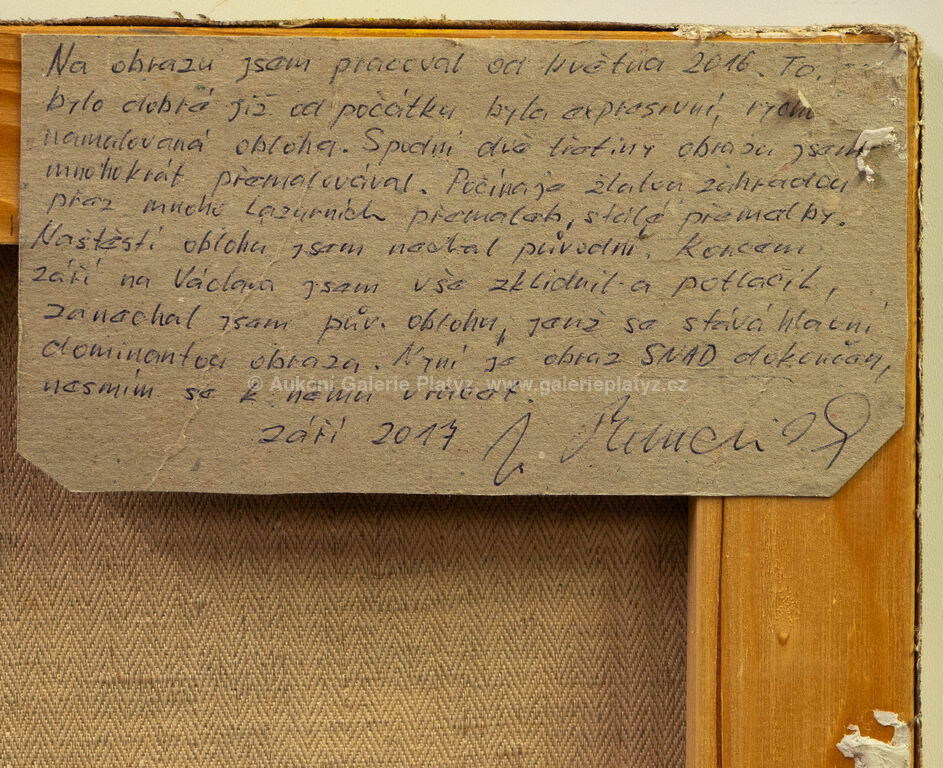 Na obrazu jsem pracoval od května 2016. To,
bylo dobré již od počátku byla expresivní,
namalovaná obloha. Spodní dvě třetiny obrazu jsem
mnohokrát přemalovával. Počínaje žlutou zahradou
přez mnoho lazurních přemaleb, stálé přemalby.
Naštěstí oblohu jsem nechal původní. Koncem
září na Václava jsem vše zklidnil a potlačil,
zanechal jsem pův. oblohu, jenž se stává hlavní
dominantou obrazu. Nyní je obraz SNAD dokončen,
nesmím se k němu vracet.
© Aukční Galerie Platýz, www.galerieplatyz.cz
září 2017